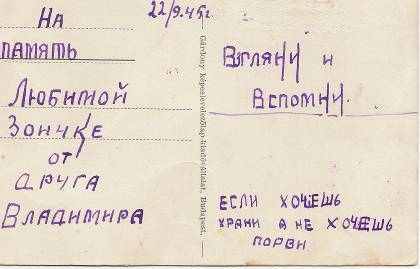 22/9.45г.
На
память
Любимой
Зоичке
от
друга
Владимира
Gárdony képeslevelezőlap-kiadóvállalat, Budapest.
Взгляни и
Вспомни
если хочешь
храни а не хочешь
порви